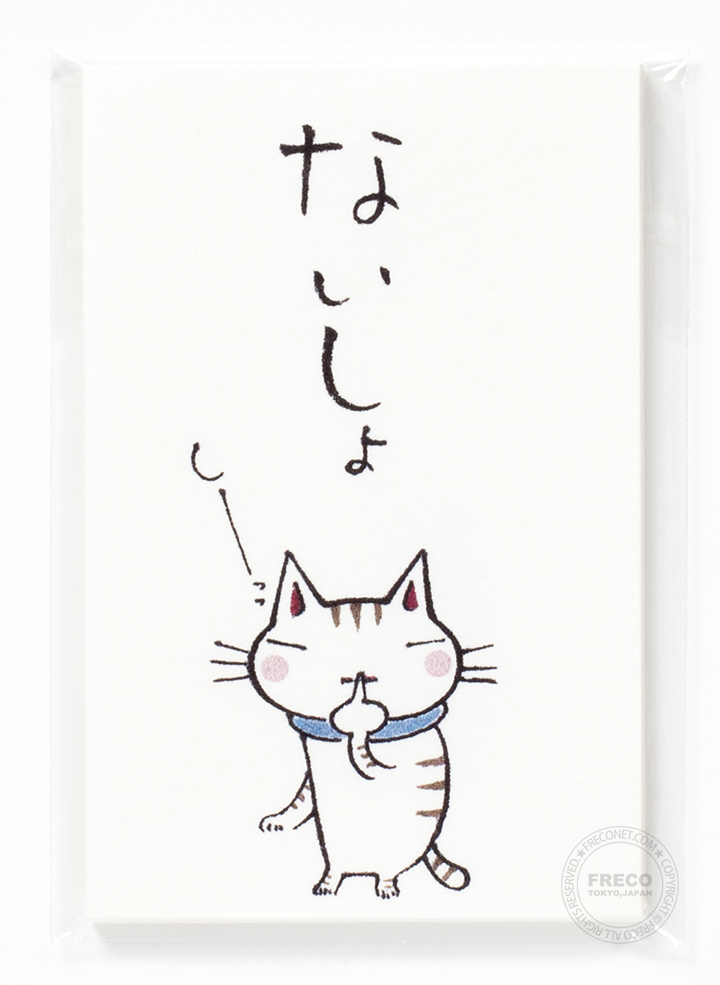 ないしょ
しーっ
FRECONET.COM ★ COPYRIGHT © FRECO ALL RIGHTS RESERVED ★
FRECO
TOKYO,JAPAN